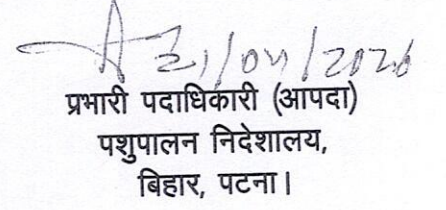 21/04/2026
प्रभारी पदाधिकारी (आपदा)
पशुपालन निदेशालय,
बिहार, पटना।